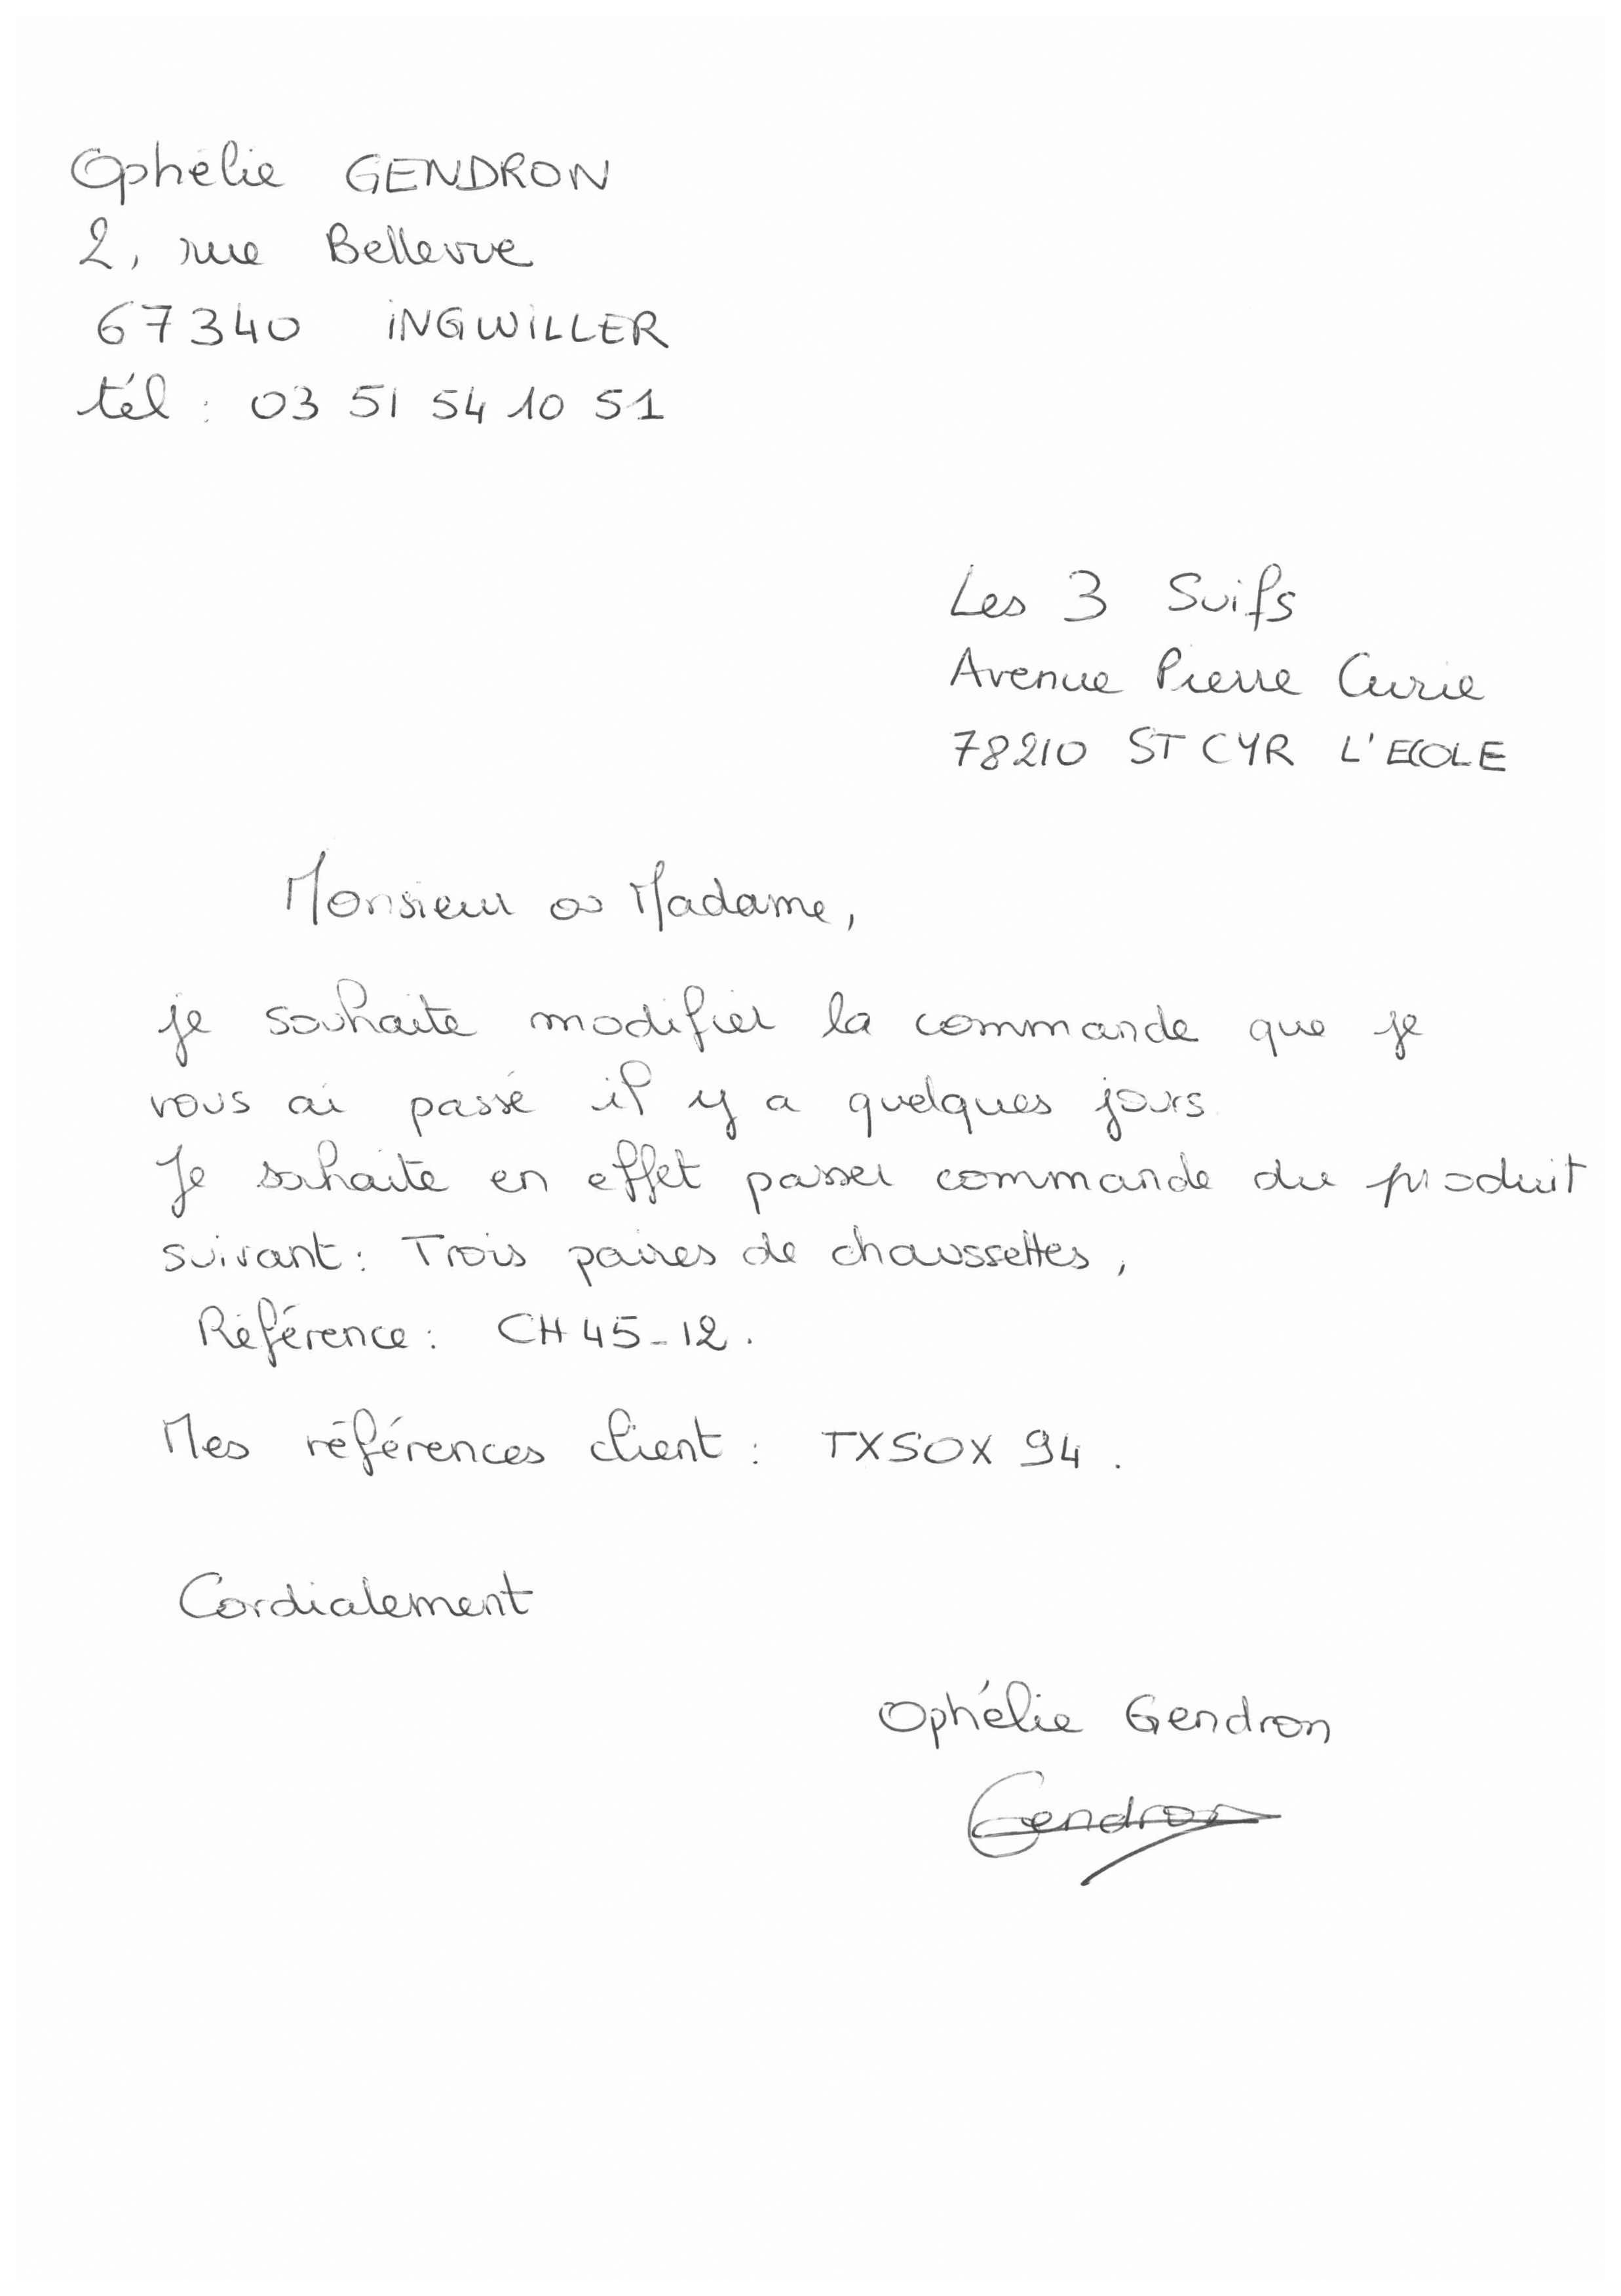 Ophélie GENDRON
2, rue Bellevue
67340 INGWILLER
tél : 03 51 54 10 51
Les 3 Suifs
Avenue Pierre Curie
78210 ST CYR L'ECOLE
Monsieur ou Madame,
je souhaite modifier la commande que je
vous ai passé il y a quelques jours.
Je souhaite en effet passer commande du produit
suivant : Trois paires de chaussettes,
Référence : CH45-12.
Mes références client : TXSOX 94.
Cordialement
Ophélie Gendron
Gendron